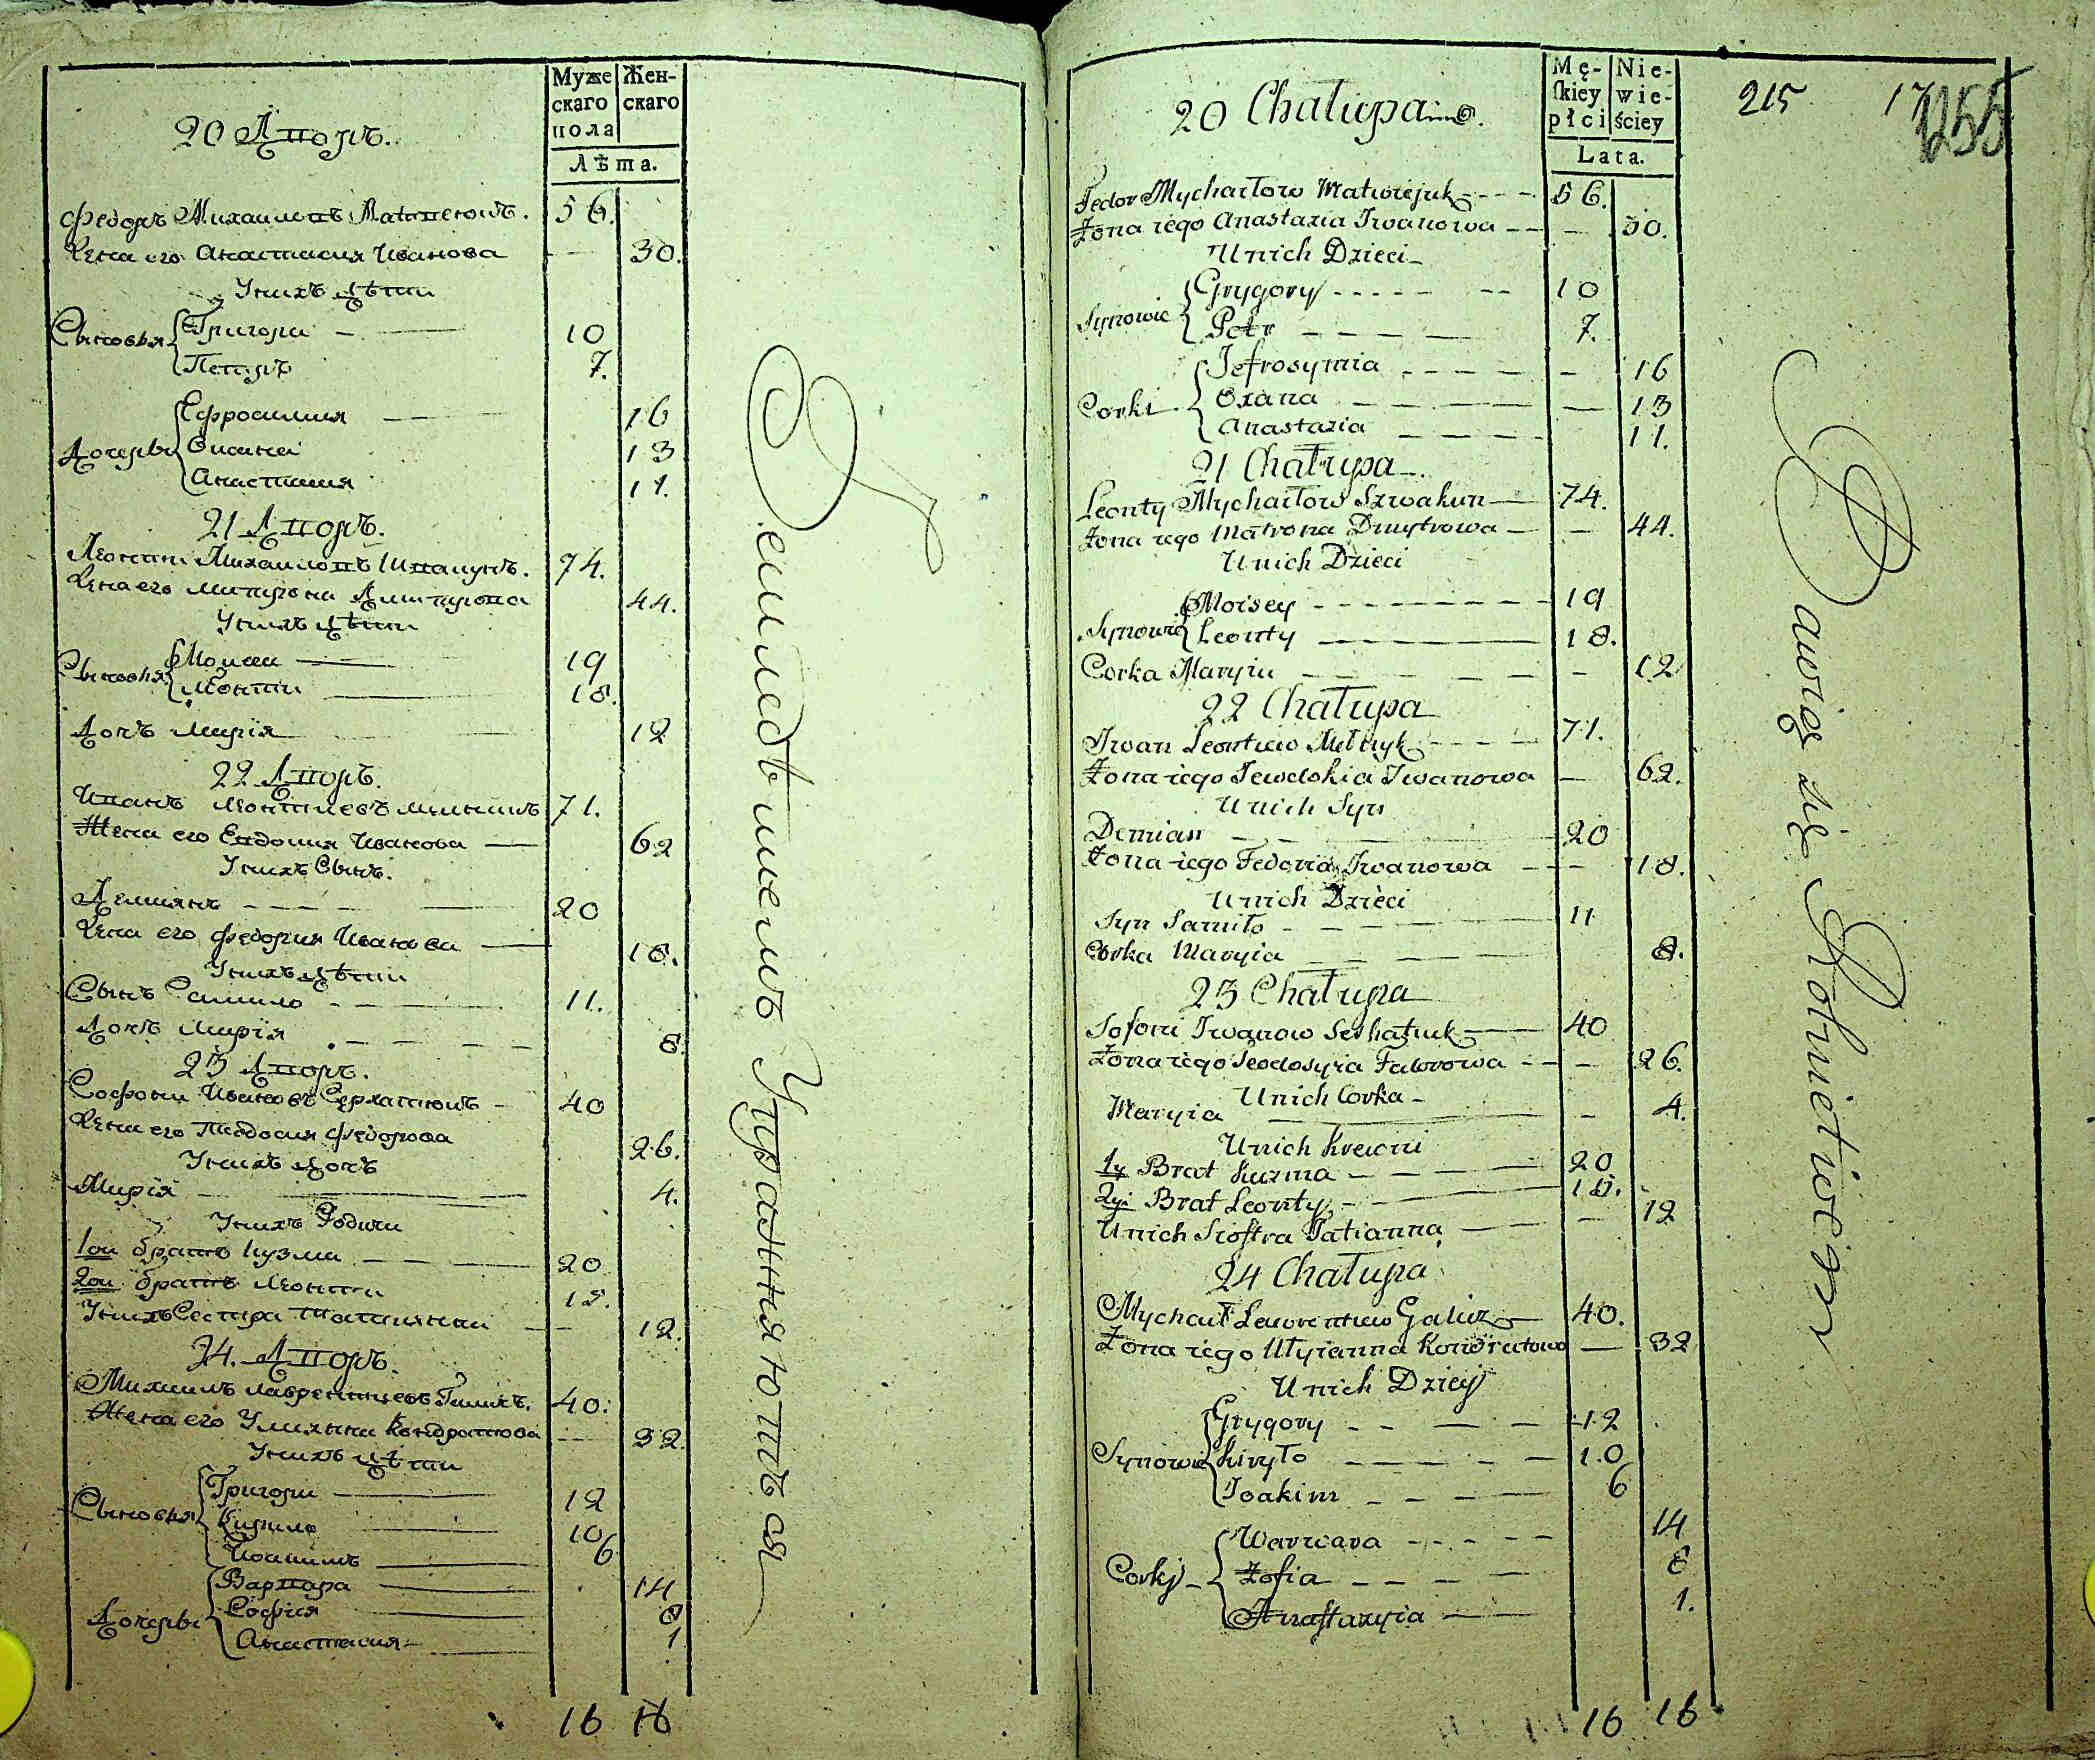 Муже
скаго
пола
Жен-
скаго
Лѣта.
20 Дворъ.
Федоръ Михаиловъ Матвеюкъ. 56.
Жена его Анастасия Иванова 30.
У нихъ дѣти
Сыновья Григори 10
Петръ 7.
Ефросимия 16
Дочерьи Оксана 13
Анастасия 11.
21 Дворъ.
Леонти Михаиловъ Швакунъ. 74.
Жена его Матрона Дмитрова 44.
У нихъ дѣти
Сыновья Моисеи 19
Леонти 18.
Дочь Марiя 12
22 Дворъ.
Иванъ Леонтиевъ 71.
Жена его Евдокия Иванова 62
У нихъ Сынъ.
Демиянъ 20
Жена его Федория Иванова 18.
У нихъ дѣти
Сынъ Самило 11.
Дочь Марiя 8.
23 Дворъ.
Софони Ивановъ 40
Жена его Теодосия Федорова 26.
У нихъ дочь
Марiя 4.
У нихъ Родичи
1ои братъ Кузма 20
2ои братъ Леонти 18.
У нихъ Сестра Татиянна 12.
24. Дворъ.
Михаилъ Лаврентиевъ Галикъ. 40.
Жена его Улияна Кондратова 32.
У нихъ дѣти
Григори 12
Сыновья Кирило 10
Иоакимъ 6
Варвара 14
Дочерьи София 8
Анастасия 1
16 16
Земледѣлиемъ Упражняютъся
Mę-
skiey
płci
Nie-
wie-
ściey
Lata.
215
17
255
20 Chałupa
Fedor Mychaiłow Matwiejuk 56.
Żona iego Anastazia Iwanowa 30.
U nich Dzieci
Synowie Grygory 10
Petr 7.
Jefrosymia 16
Corki Oxana 13
Anastazia 11.
21 Chałupa
Leonty Mychaiłow Szwakun 74.
Żona iego Matrona Dmytrowa 44.
U nich Dzieci
Moisey 19
Synowie Leonty 18.
Corka Maryia 12
22 Chałupa
Iwan Leontiew Melnyk 71.
Żona iego Jewdokia Iwanowa 62.
U nich Syn
Demian 20
Żona iego Fedoria Iwanowa 18.
U nich Dzieci
Syn Samiło 11
Corka Maryia 8.
23 Chałupa
Sofoni Iwanow 40
Żona iego Teodosyia 26.
U nich Corka
Maryia 4.
U nich Krewni
1y Brat Kuzma 20
2gi Brat Leonty 18.
U nich Siostra Tatianna 12
24 Chałupa
Mychaił Lawrentiew Galik 40.
Żona iego Ulyianna Kondratowa 32
U nich Dziecy
Grygory 12
Synowie Kiryło 10
Joakim 6
Warwara 14
Corky Zofia 8
Anastazyia 1.
16 16
Bawią się Rolnictwem